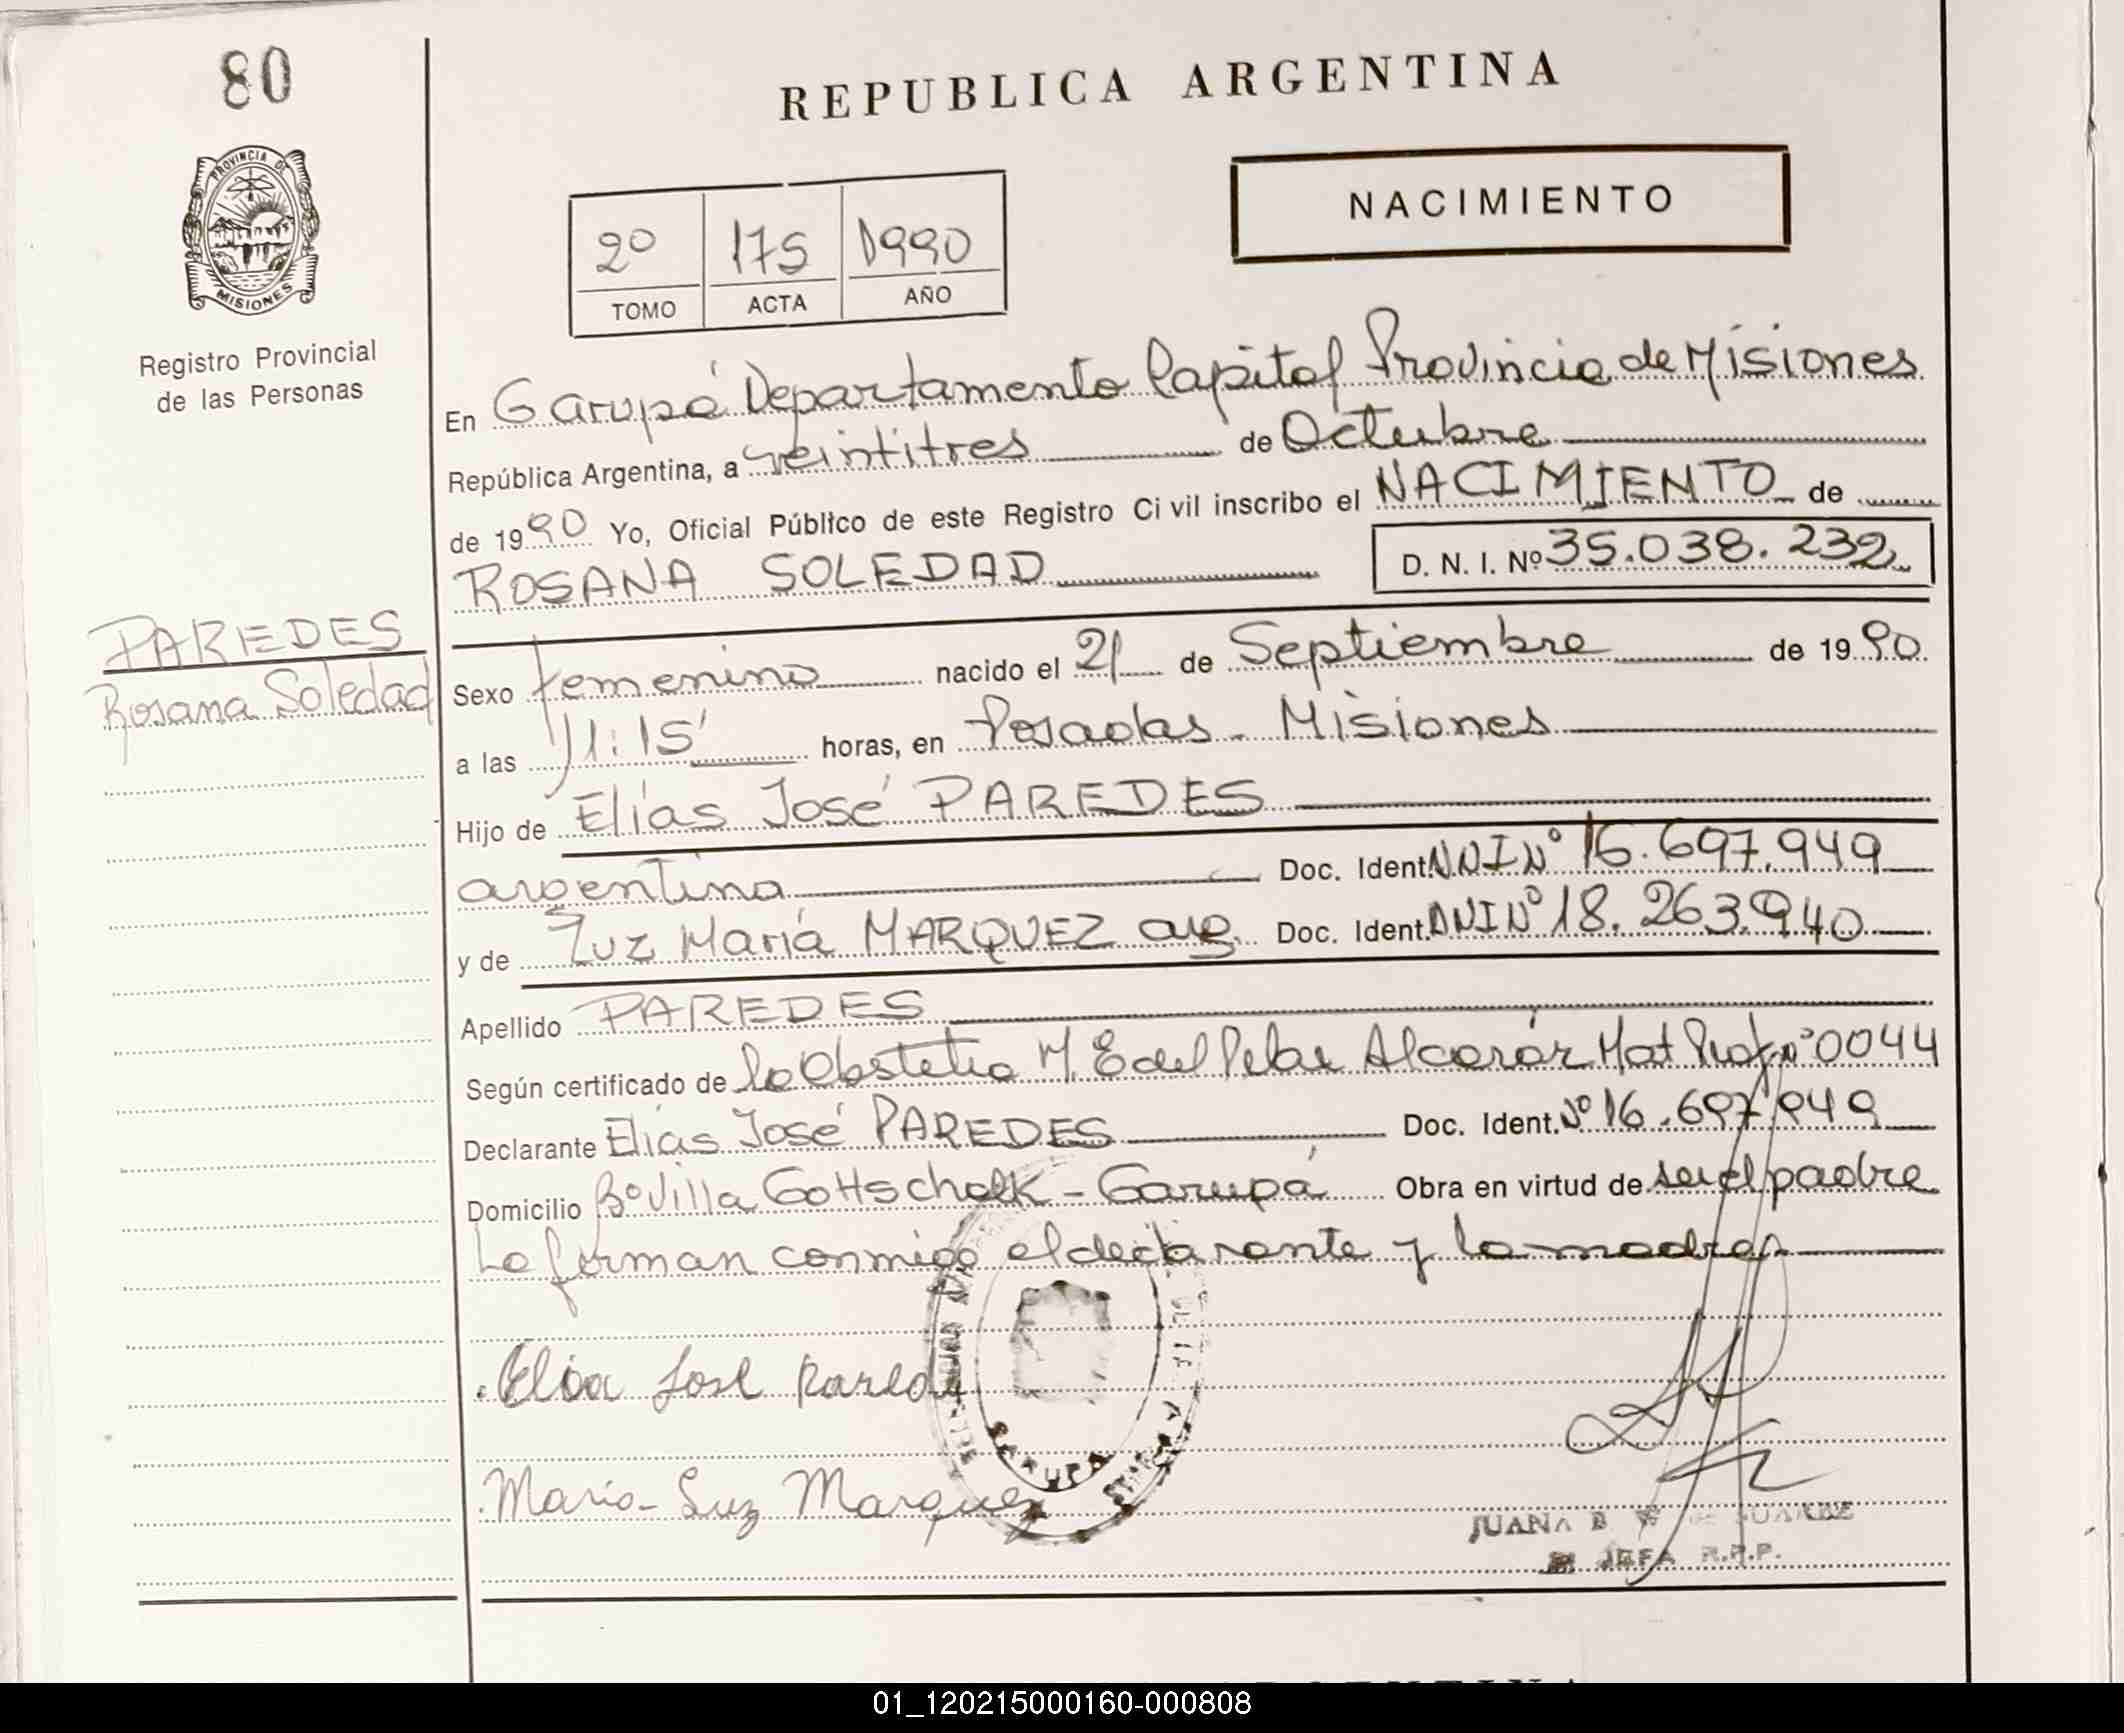 80
REPUBLICA ARGENTINA
PROVINCIA DE
MISIONES
NACIMIENTO
2º 175 1990
TOMO ACTA AÑO
Registro Provincial
de las Personas
En Garupá Departamento Capital Provincia de Misiones
República Argentina, a veintitres de Octubre
de 1990 Yo, Oficial Público de este Registro Civil inscribo el NACIMIENTO de
ROSANA SOLEDAD D. N. I. Nº 35.038.232
PAREDES
Rosana Soledad
Sexo femenino nacido el 21 de Septiembre de 1990
a las 11:15' horas, en Posadas - Misiones
Hijo de Elías José PAREDES
argentina Doc. Ident. DNI Nº 16.697.949
y de Luz María MARQUEZ arg. Doc. Ident. DNI Nº 18.263.940
Apellido PAREDES
Según certificado de la Obstetra M. E del Pilar Alcaráz Mat Prof nº 0044
Declarante Elías José PAREDES Doc. Ident. Nº 16.697.949
Domicilio Bº Villa Gottschalk - Garupá Obra en virtud de ser el padre
La firman conmigo el declarante y la madre
Elia José Pared
Maria Luz Marquez
GARUPA
JUANA B DE SUAREZ
JEFA R.P.P.
01_120215000160-000808